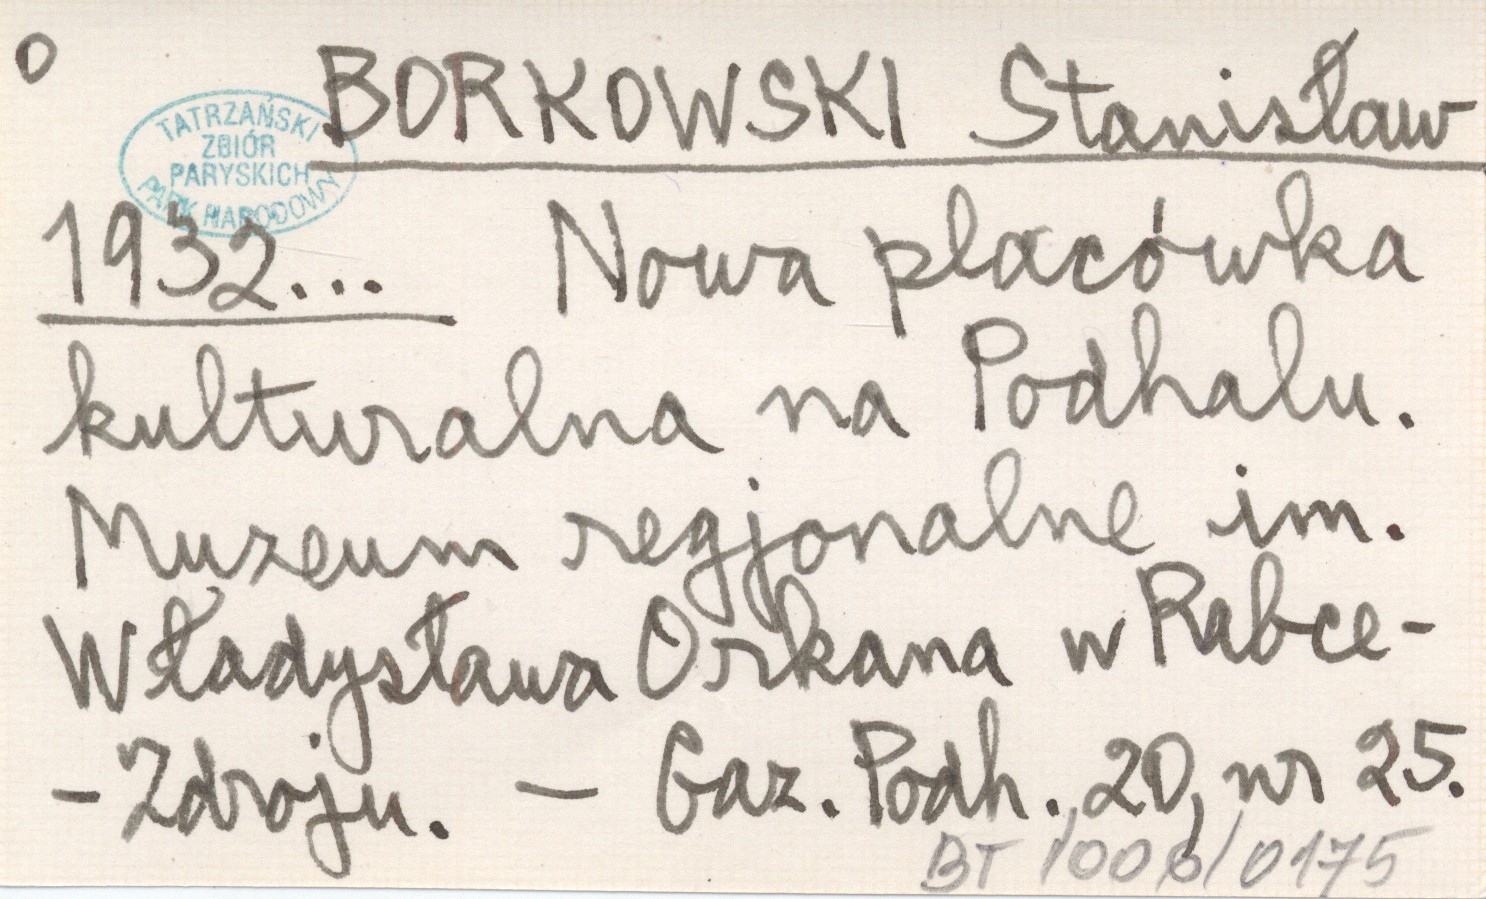 O BORKOWSKI Stanisław
TATRZAŃSKI
ZBIÓR
PARYSKICH
PARK NARODOWY
1932... Nowa placówka
kulturalna na Podhalu.
Muzeum regjonalne im.
Władysława Orkana w Rabce-
- Zdroju. — Gaz. Podh., 20, nr 25.
BT /006/0175